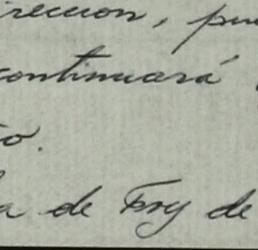 rección, pu
continuará
to.
la de Fry de